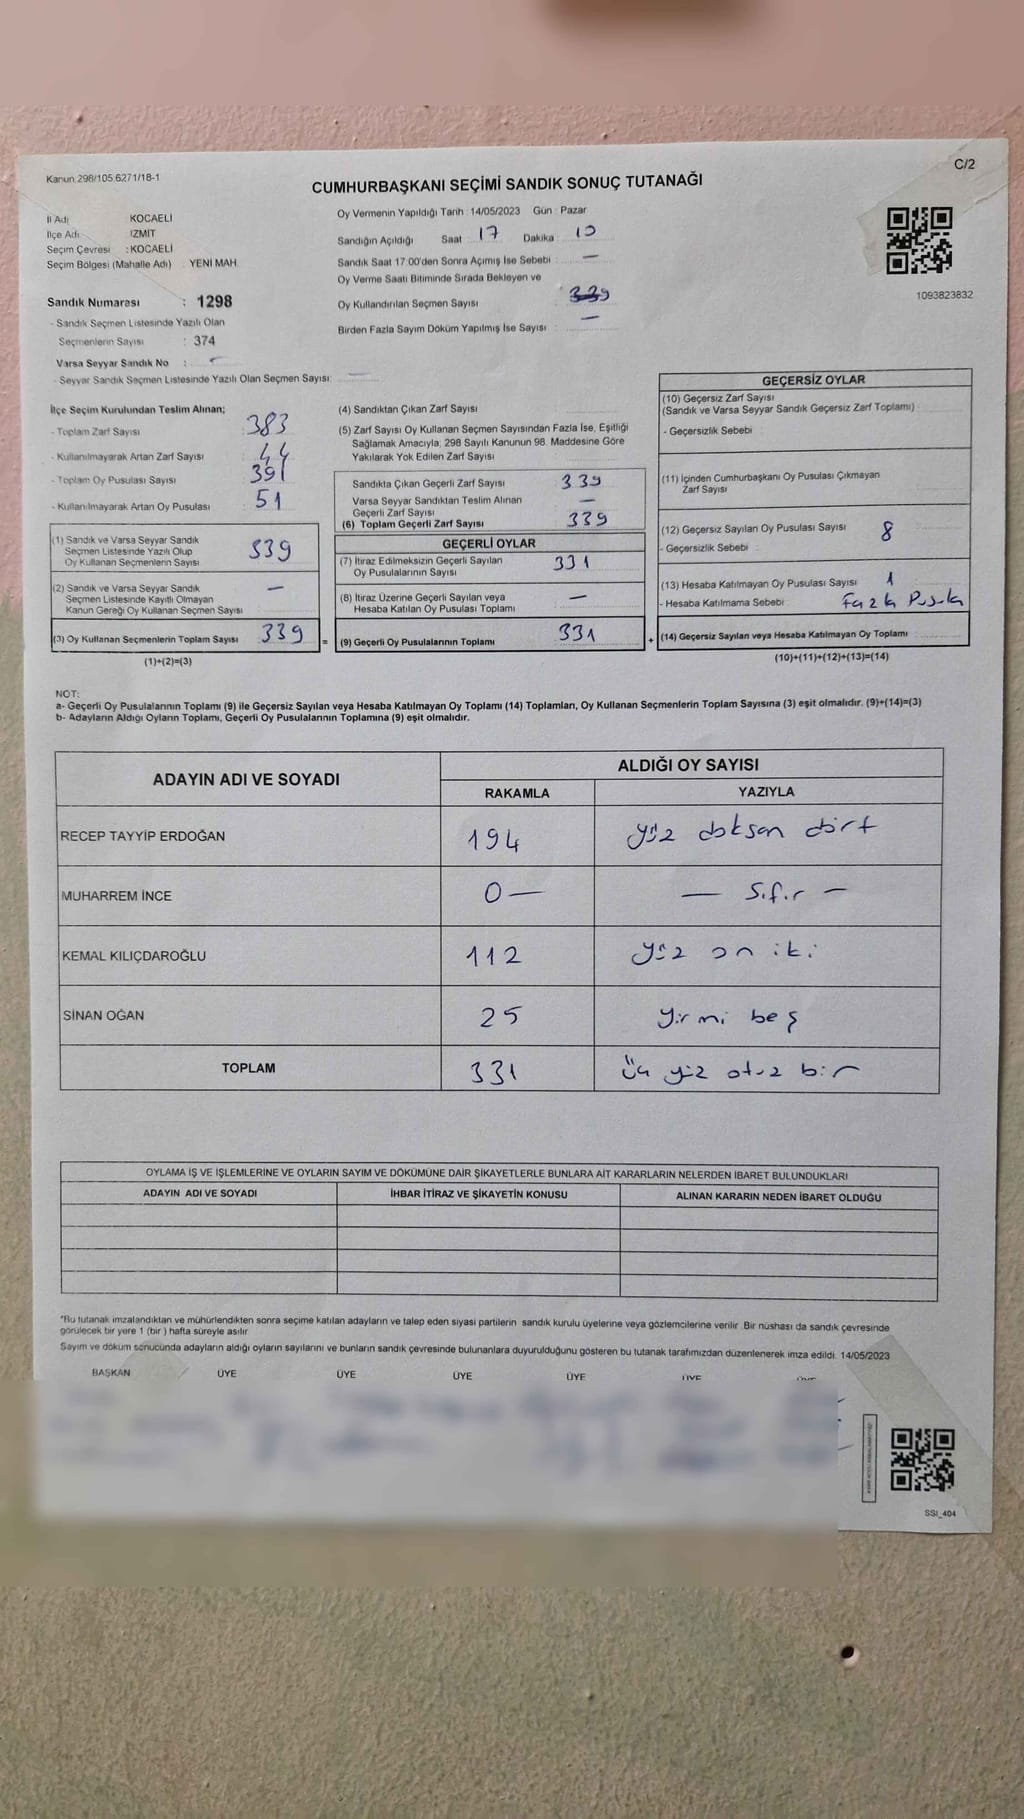 Kanun 298/105 6271/18-1
C/2
CUMHURBAŞKANI SEÇİMİ SANDIK SONUÇ TUTANAĞI
İl Adı KOCAELİ
İlçe Adı İZMİT
Seçim Çevresi : KOCAELİ
Seçim Bölgesi (Mahalle Adı) : YENİ MAH.
Sandık Numarası : 1298
- Sandık Seçmen Listesinde Yazılı Olan
Seçmenlerin Sayısı : 374
Varsa Seyyar Sandık No : -
- Seyyar Sandık Seçmen Listesinde Yazılı Olan Seçmen Sayısı: —
Oy Vermenin Yapıldığı Tarih : 14/05/2023 Gün : Pazar
Sandığın Açıldığı Saat 17 Dakika 10
Sandık Saat 17:00'den Sonra Açımış İse Sebebi : —
Oy Verme Saati Bitiminde Sırada Bekleyen ve
Oy Kullandırılan Seçmen Sayısı : 339
Birden Fazla Sayım Döküm Yapılmış İse Sayısı : —
1093823832
İlçe Seçim Kurulundan Teslim Alınan;
- Toplam Zarf Sayısı 383
- Kullanılmayarak Artan Zarf Sayısı 44
- Toplam Oy Pusulası Sayısı 391
- Kullanılmayarak Artan Oy Pusulası 51
(1) Sandık ve Varsa Seyyar Sandık
Seçmen Listesinde Yazılı Olup
Oy Kullanan Seçmenlerin Sayısı 339
(2) Sandık ve Varsa Seyyar Sandık
Seçmen Listesinde Kayıtlı Olmayan
Kanun Gereği Oy Kullanan Seçmen Sayısı —
(3) Oy Kullanan Seçmenlerin Toplam Sayısı 339 =
(1)+(2)=(3)
(4) Sandıktan Çıkan Zarf Sayısı
(5) Zarf Sayısı Oy Kullanan Seçmen Sayısından Fazla İse, Eşitliği
Sağlamak Amacıyla; 298 Sayılı Kanunun 98. Maddesine Göre
Yakılarak Yok Edilen Zarf Sayısı
Sandıkta Çıkan Geçerli Zarf Sayısı 339
Varsa Seyyar Sandıktan Teslim Alınan
Geçerli Zarf Sayısı —
(6) Toplam Geçerli Zarf Sayısı 339
GEÇERLİ OYLAR
(7) İtiraz Edilmeksizin Geçerli Sayılan
Oy Pusulalarının Sayısı 331
(8) İtiraz Üzerine Geçerli Sayılan veya
Hesaba Katılan Oy Pusulası Toplamı —
(9) Geçerli Oy Pusulalarının Toplamı 331 +
GEÇERSİZ OYLAR
(10) Geçersiz Zarf Sayısı
(Sandık ve Varsa Seyyar Sandık Geçersiz Zarf Toplamı)
- Geçersizlik Sebebi :
(11) İçinden Cumhurbaşkanı Oy Pusulası Çıkmayan
Zarf Sayısı
(12) Geçersiz Sayılan Oy Pusulası Sayısı 8
- Geçersizlik Sebebi :
(13) Hesaba Katılmayan Oy Pusulası Sayısı 1
- Hesaba Katılmama Sebebi : Fazla Pusula
(14) Geçersiz Sayılan veya Hesaba Katılmayan Oy Toplamı
(10)+(11)+(12)+(13)=(14)
NOT:
a- Geçerli Oy Pusulalarının Toplamı (9) ile Geçersiz Sayılan veya Hesaba Katılmayan Oy Toplamı (14) Toplamları, Oy Kullanan Seçmenlerin Toplam Sayısına (3) eşit olmalıdır. (9)+(14)=(3)
b- Adayların Aldığı Oyların Toplamı, Geçerli Oy Pusulalarının Toplamına (9) eşit olmalıdır.
ADAYIN ADI VE SOYADI ALDIĞI OY SAYISI
RAKAMLA YAZIYLA
RECEP TAYYİP ERDOĞAN 194 yüz doksan dört
MUHARREM İNCE 0— — Sıfır —
KEMAL KILIÇDAROĞLU 112 yüz on iki
SİNAN OĞAN 25 yirmi beş
TOPLAM 331 üç yüz otuz bir
OYLAMA İŞ VE İŞLEMLERİNE VE OYLARIN SAYIM VE DÖKÜMÜNE DAİR ŞİKAYETLERLE BUNLARA AİT KARARLARIN NELERDEN İBARET BULUNDUKLARI
ADAYIN ADI VE SOYADI İHBAR İTİRAZ VE ŞİKAYETİN KONUSU ALINAN KARARIN NEDEN İBARET OLDUĞU
*Bu tutanak imzalandıktan ve mühürlendikten sonra seçime katılan adayların ve talep eden siyasi partilerin sandık kurulu üyelerine veya gözlemcilerine verilir. Bir nüshası da sandık çevresinde
görülecek bir yere 1 (bir) hafta süreyle asılır.
Sayım ve döküm sonucunda adayların aldığı oyların sayılarını ve bunların sandık çevresinde bulunanlara duyurulduğunu gösteren bu tutanak tarafımızdan düzenlenerek imza edildi. 14/05/2023
BAŞKAN ÜYE ÜYE ÜYE ÜYE ÜYE ÜYE
SSI_404